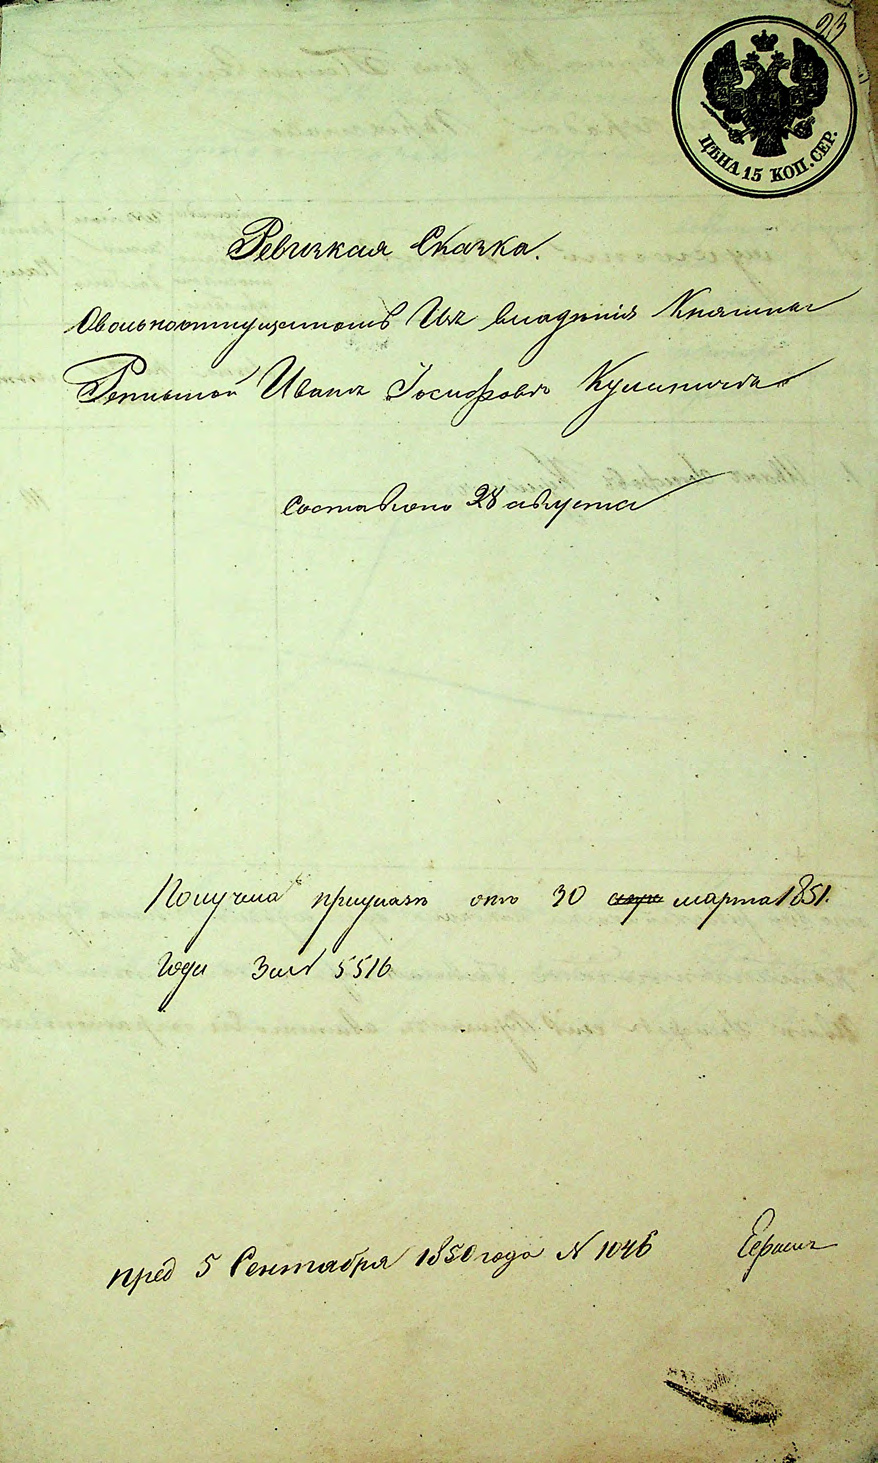 23
ЦѢНА 15 КОП. СЕР.
Ревизкая Сказка.
Овольноотпущенномъ Изъ владѣнія Княгини
Иванъ Іосифовъ
Составлено 28 августа
Получена приуказъ отъ 30 марта 1851.
года За № 5516
пред 5 Сентября 1850 года N 1046